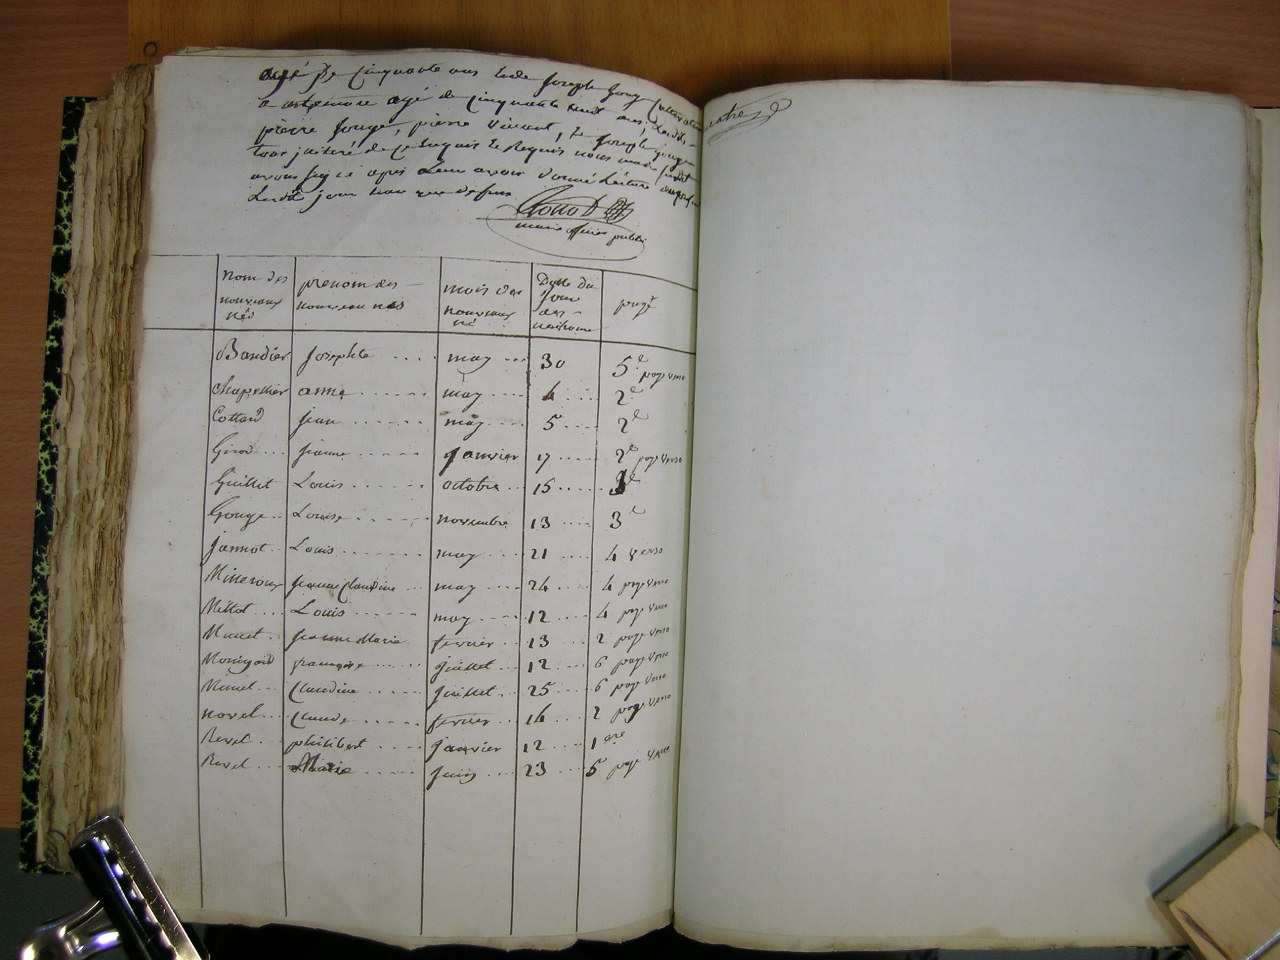 agé de Cinquante ans et de Joseph
agé de Cinquante huit ans,
pierre Gouge, pierre Vincent, et Joseph
de ce Requis nous
avons signé apres Leur avoir donné Lecture
Lesdit jour
maire officier public
nom des nouveaux nés prenom des nouveau nés mois des nouveaux né Datte du Jour des naissance page
Baudier Josephte may 30 5e page verso
Chapellier anne may 4 2e
Cottard jean may 5 2e
Girod jeanne Janvier 17 2e page verso
Guillet Louis octobre 15 3e
Gouge Louise novembre 13 3e
Jannot Louis may 21 4 verso
jeanne Claudine may 24 4 page verso
Millot Louis may 12 4 page verso
jeanne Marie fevrier 13 2 page verso
françoise juillet 12 6 page verso
Claudine juillet 25 6 page verso
novel Claude fevrier 16 2 page verso
Revel philibert janvier 12 1ere
Revel Marie juin 23 5 page verso